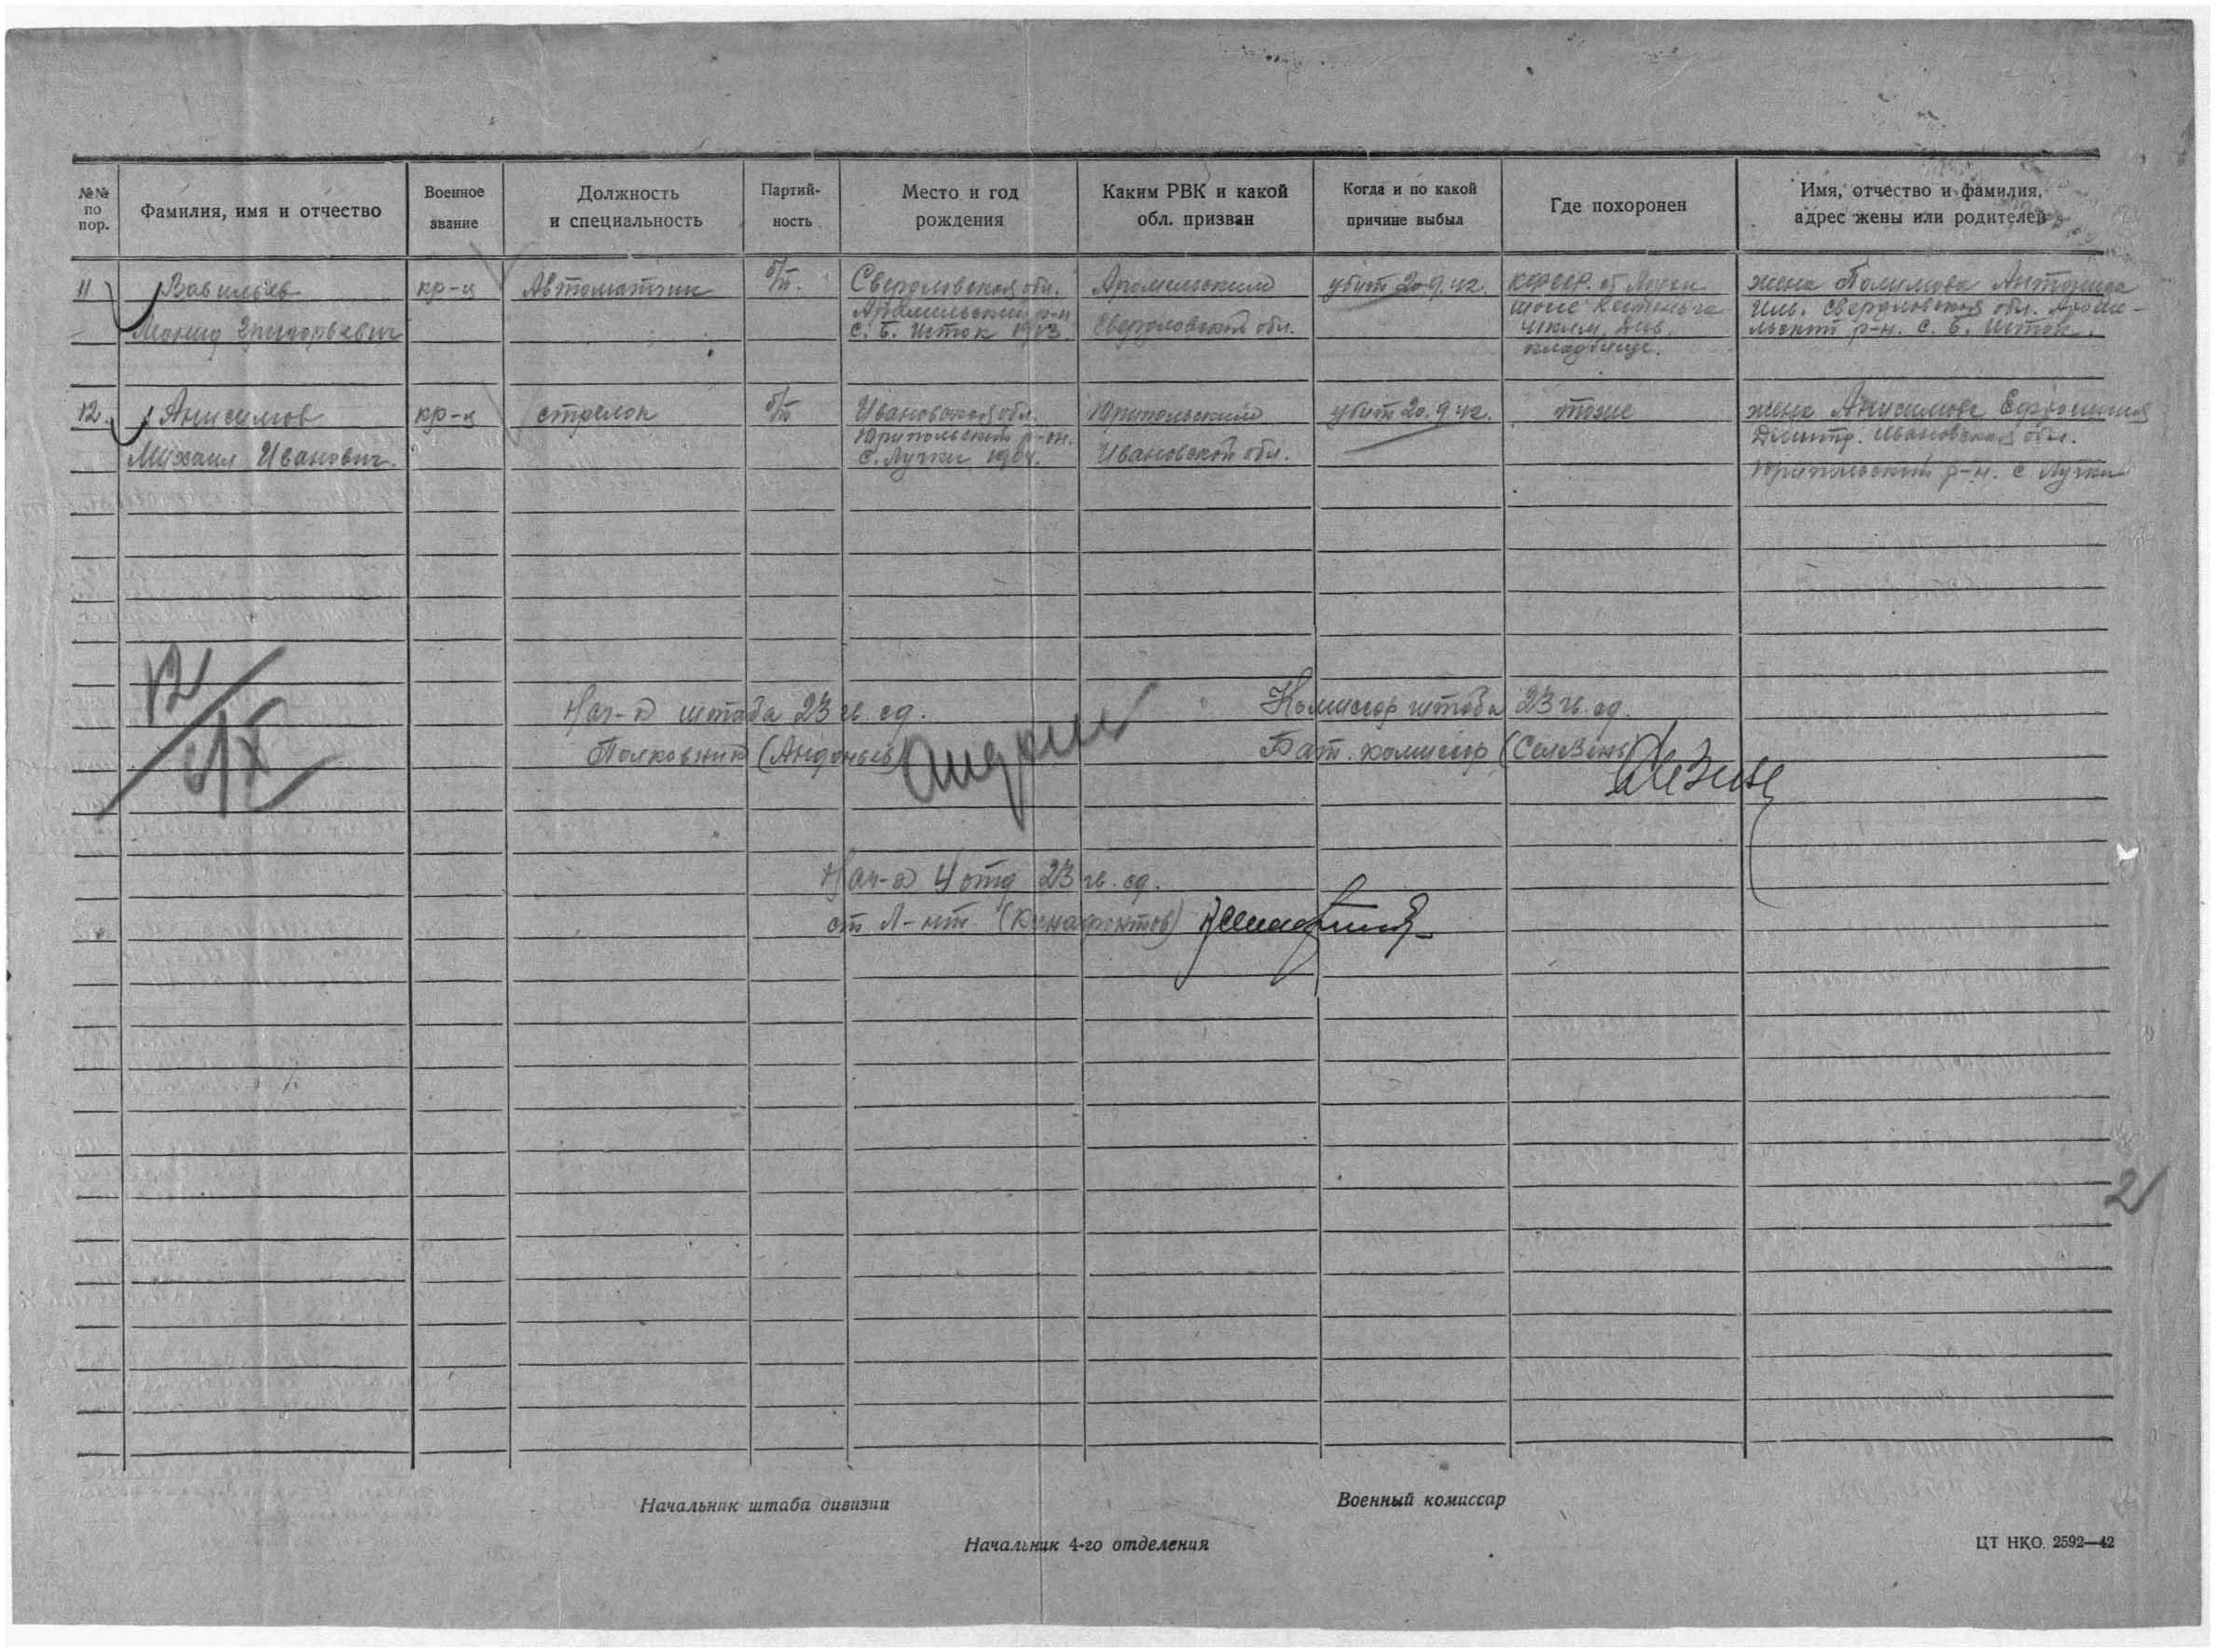 №№ по пор.
Фамилия, имя и отчество
Военное звание
Должность и специальность
Партий- ность
Место и год рождения
Каким РВК и какой обл. призван
Когда и по какой причине выбыл
Где похоронен
Имя, отчество и фамилия, адрес жены или родителей
11
Вавильев
кр-ц
Автоматчик
б/п.
Свердловская обл.
Арамильский р-н
с. Б. Исток 1913.
Арамильским
Свердловской обл.
убит 20.9.42.
КФССР. ст Лоухи
шоссе Кестеньга
див.
кладбище.
жена Антонида
Свердловская обл.
р-н. с. Б. Исток.
12.
Анисимов
Михаил Иванович.
кр-ц
стрелок
б/п
Ивановская обл.
р-он.
с. Лучки 1904.
Ивановской обл.
убит 20.9.42.
тоже
жена Анисимова Ефросиния
Дмитр. Ивановская обл.
р-н. с Лучки
12/IX
Нач-к штаба 23 гв. сд.
Полковник
Комиссар штаба 23 гв. сд.
Бат. комиссар (Селезень)
Нач-к 4 отд 23 гв. сд.
ст Л-нт
2
Начальник штаба дивизии
Военный комиссар
Начальник 4-го отделения
ЦТ НКО. 2592—42